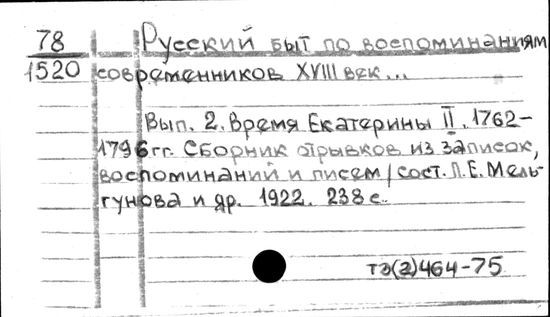 78 Русский быт по воспоминаниям
1520 современников XVIII век...
Вып. 2. Время Екатерины II. 1762-
1796 гг. Сборник отрывков из записок,
воспоминаний и писем / сост. Л. Е. Мель-
гунова и др. 1922. 238 с.
тз(2)464-75